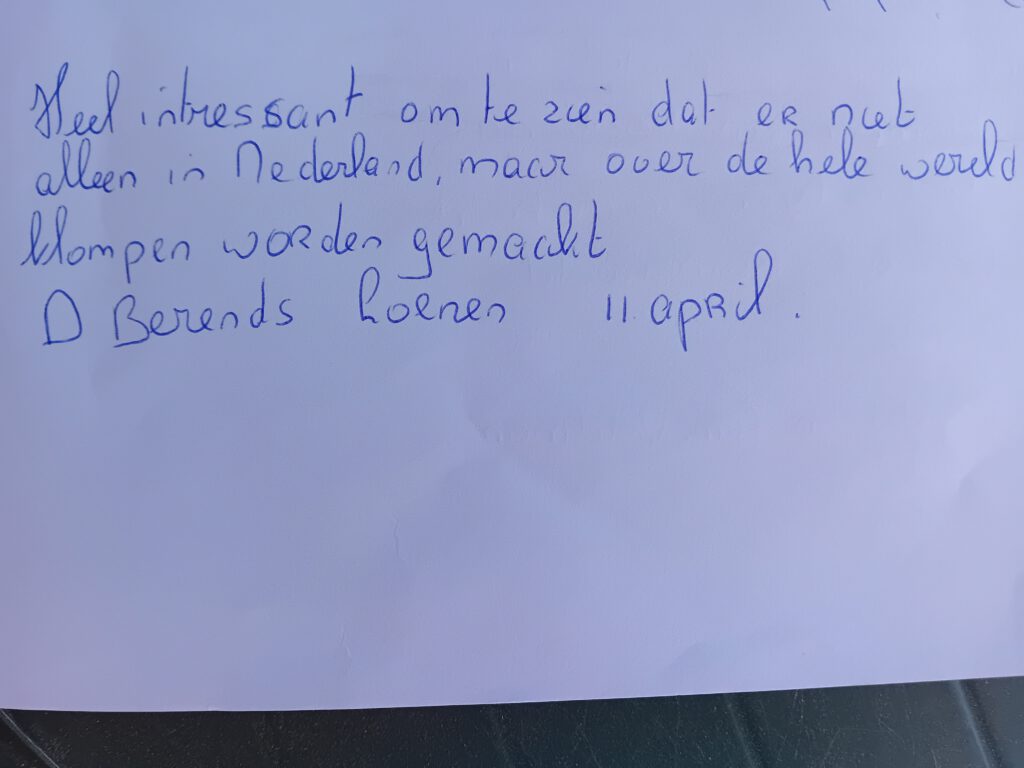 Heel intressant om te zien dat er niet
alleen in Nederland, maar over de hele wereld
klompen worden gemaakt
D Berends Loenen 11 april.